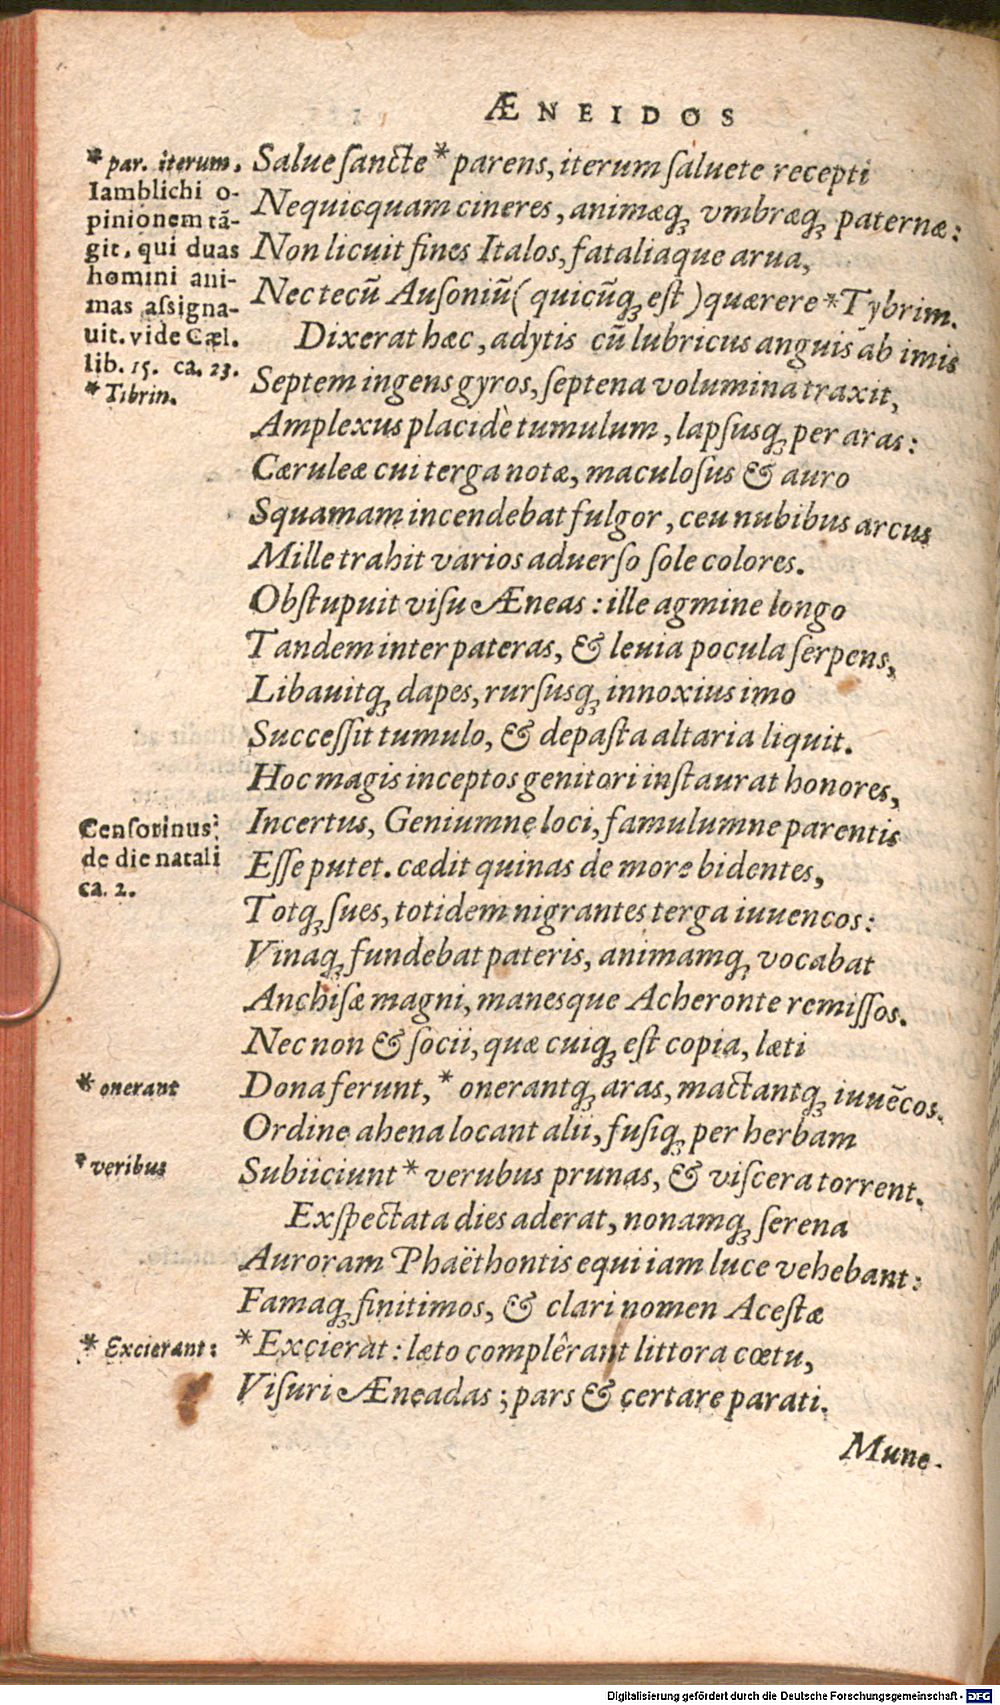 ÆNEIDOS
* par. iterum.
Iamblichi o-
pinionem tã-
git, qui duas
homini ani-
mas assigna-
uit. vide Cæl.
lib. 15. ca. 23.
* Tibrin.
Salue sancte * parens, iterum saluete recepti
Nequicquam cineres, animæq́; vmbræq́; paternæ:
Non licuit fines Italos, fataliaque arua,
Nec tecũ Ausoniũ ( quicũq; est ) quærere * Tybrim.
Dixerat hæc, adytis cũ lubricus anguis ab imis
Septem ingens gyros, septena volumina traxit,
Amplexus placidè tumulum, lapsusq; per aras:
Cæruleæ cui terga notæ, maculosus & auro
Squamam incendebat fulgor, ceu nubibus arcus
Mille trahit varios aduerso sole colores.
Obstupuit visu Æneas: ille agmine longo
Tandem inter pateras, & leuia pocula serpens,
Libauitq; dapes, rursusq; innoxius imo
Successit tumulo, & depasta altaria liquit.
Hoc magis inceptos genitori instaurat honores,
Censorinus:
de die natali
ca. 2.
Incertus, Geniumne loci, famulumne parentis
Esse putet. cædit quinas de more bidentes,
Totq; sues, totidem nigrantes terga iuuencos:
Vinaq; fundebat pateris, animamq; vocabat
Anchisæ magni, manesque Acheronte remissos.
Nec non & socii, quæ cuiq; est copia, læti
* onerant
Dona ferunt, * onerantq; aras, mactantq; iuuẽcos.
Ordine ahena locant alii, fusiq; per herbam
* veribus
Subiiciunt * verubus prunas, & viscera torrent.
Exspectata dies aderat, nonamq; serena
Auroram Phaëthontis equi iam luce vehebant:
Famaq; finitimos, & clari nomen Acestæ
* Excierant:
* Excierat: læto complêrant littora cœtu,
Visuri Æneadas; pars & certare parati.
Mune-
Digitalisierung gefördert durch die Deutsche Forschungsgemeinschaft - DFG